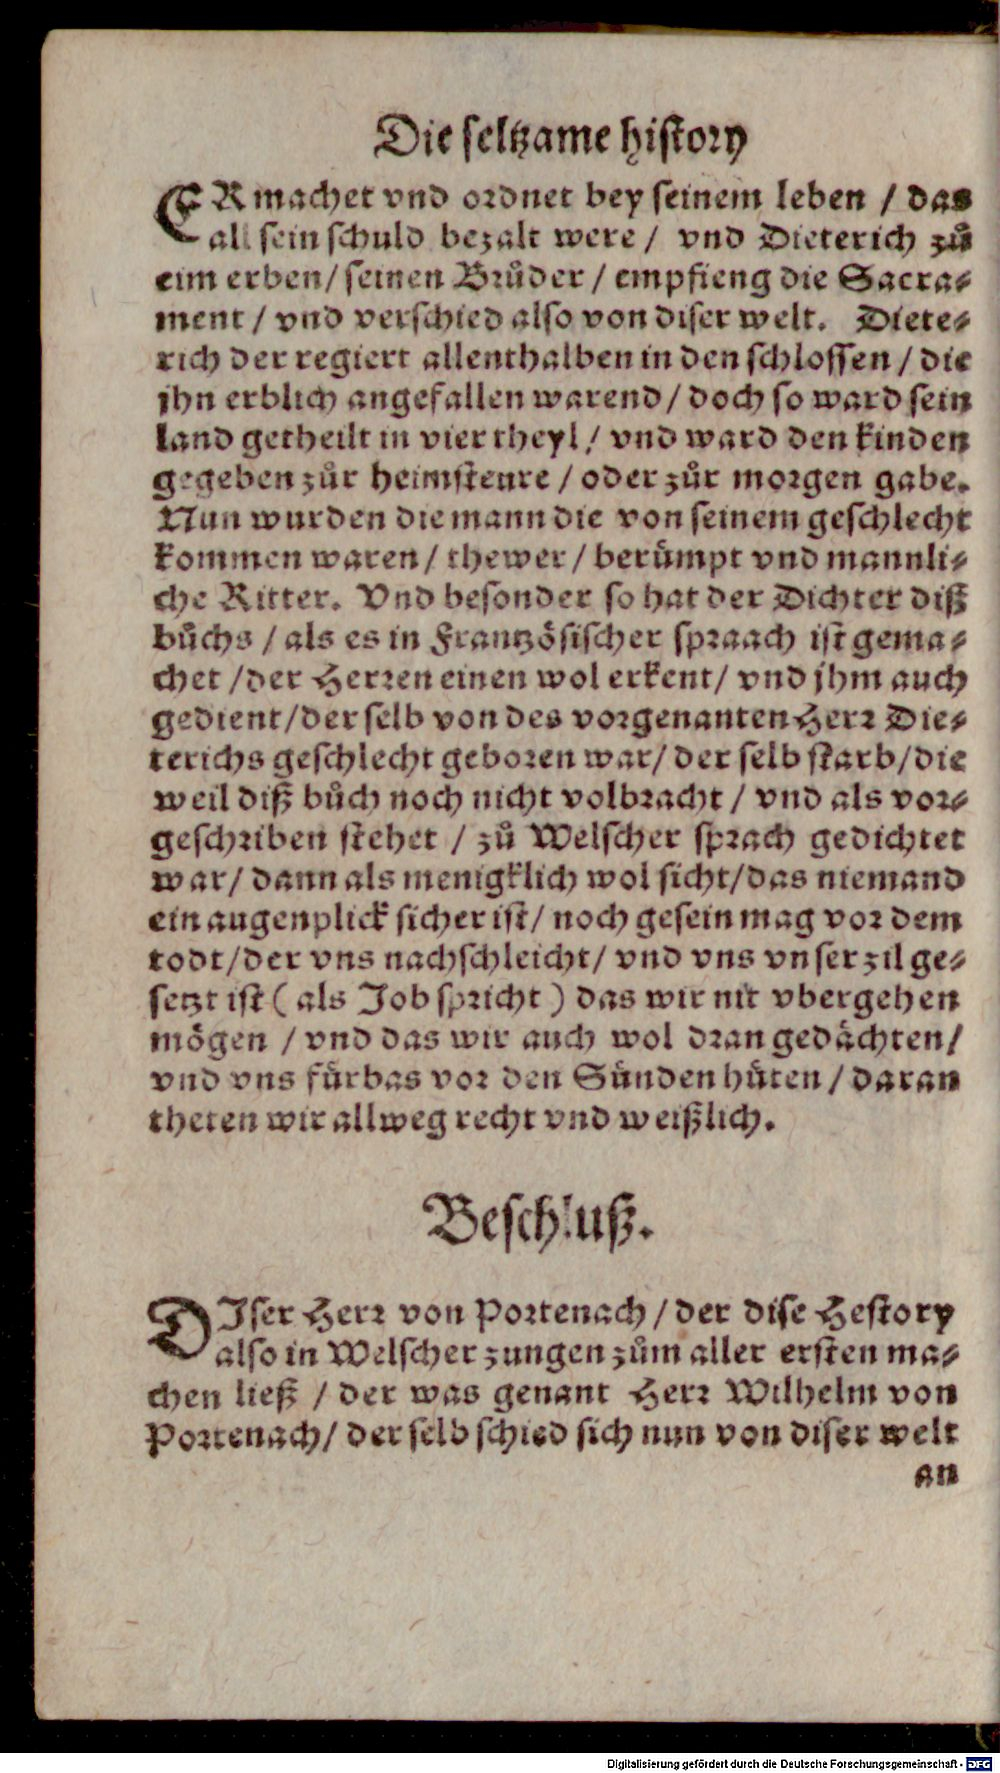 Die seltzame history
ER machet vnd ordnet bey seinem leben / das
all sein schuld bezalt were / vnd Dieterich zuͦ
eim erben / seinen Bruͦder / empfieng die Sacra⸗
ment / vnd verschied also von diser welt. Diete⸗
rich der regiert allenthalben in den schlossen / die
jhn erblich angefallen warend / doch so ward sein
land getheilt in vier theyl / vnd ward den kinden
gegeben zuͦr heimsteure / oder zuͦr morgen gabe.
Nun wurden die mann die von seinem geschlecht
kommen waren / thewer / beruͤmpt vnd mannli⸗
che Ritter. Vnd besonder so hat der Dichter diß
buͦchs / als es in Frantzoͤsischer spraach ist gema⸗
chet / der Herren einen wol erkent / vnd jhm auch
gedient / der selb von des vorgenanten Herr Die⸗
terichs geschlecht geboren war / der selb starb / die
weil diß buͦch noch nicht volbracht / vnd als vor⸗
geschriben stehet / zuͦ Welscher sprach gedichtet
war / dann als menigklich wol sicht / das niemand
ein augenplick sicher ist / noch gesein mag vor dem
todt / der vns nachschleicht / vnd vns vnser zil ge⸗
setzt ist ( als Job spricht ) das wir nit vbergehen
moͤgen / vnd das wir auch wol dran gedaͤchten /
vnd vns fuͤrbas vor den Suͤnden huͤten / daran
theten wir allweg recht vnd weißlich.
Beschluß.
DIser Herr von Portenach / der dise Hestory
also in Welscher zungen zuͦm aller ersten ma⸗
chen ließ / der was genant Herr Wilhelm von
Portenach / der selb schied sich nun von diser welt
an
Digitalisierung gefördert durch die Deutsche Forschungsgemeinschaft - DFG